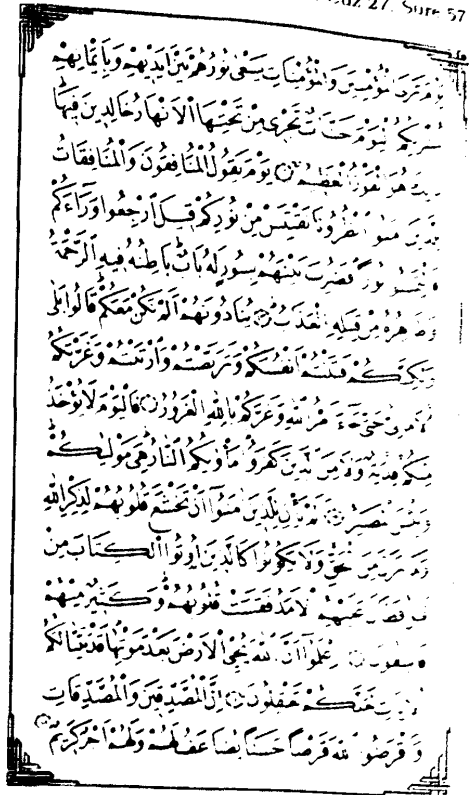 Cüz 27, Sure 57
يَوْمَ تَرَى الْمُؤْمِنِينَ وَالْمُؤْمِنَاتِ يَسْعٰى نُورُهُمْ بَيْنَ اَيْدِيهِمْ وَبِاَيْمَانِهِمْ
بُشْرٰيكُمُ الْيَوْمَ جَنَّاتٌ تَجْرِى مِنْ تَحْتِهَا الْاَنْهَارُ خَالِدِينَ فِيهَا
ذٰلِكَ هُوَ الْفَوْزُ الْعَظِيمُ يَوْمَ يَقُولُ الْمُنَافِقُونَ وَالْمُنَافِقَاتُ
لِلَّذِينَ اٰمَنُوا انْظُرُونَا نَقْتَبِسْ مِنْ نُورِكُمْ قِيلَ ارْجِعُوا وَرَٓاءَكُمْ
فَالْتَمِسُوا نُورًا فَضُرِبَ بَيْنَهُمْ بِسُورٍ لَهُ بَابٌ بَاطِنُهُ فِيهِ الرَّحْمَةُ
وَظَاهِرُهُ مِنْ قِبَلِهِ الْعَذَابُ يُنَادُونَهُمْ اَلَمْ نَكُنْ مَعَكُمْ قَالُوا بَلٰى
وَلٰكِنَّكُمْ فَتَنْتُمْ اَنْفُسَكُمْ وَتَرَبَّصْتُمْ وَارْتَبْتُمْ وَغَرَّتْكُمُ
الْاَمَانِىُّ حَتّٰى جَٓاءَ اَمْرُ اللّٰهِ وَغَرَّكُمْ بِاللّٰهِ الْغَرُورُ فَالْيَوْمَ لَا يُؤْخَذُ
مِنْكُمْ فِدْيَةٌ وَلَا مِنَ الَّذِينَ كَفَرُوا مَأْوٰيكُمُ النَّارُ هِىَ مَوْلٰيكُمْ
وَبِئْسَ الْمَصِيرُ اَلَمْ يَأْنِ لِلَّذِينَ اٰمَنُٓوا اَنْ تَخْشَعَ قُلُوبُهُمْ لِذِكْرِ اللّٰهِ
وَمَا نَزَلَ مِنَ الْحَقِّ وَلَا يَكُونُوا كَالَّذِينَ اُوتُوا الْكِتَابَ مِنْ
قَبْلُ فَطَالَ عَلَيْهِمُ الْاَمَدُ فَقَسَتْ قُلُوبُهُمْ وَكَثِيرٌ مِنْهُمْ
فَاسِقُونَ اِعْلَمُٓوا اَنَّ اللّٰهَ يُحْىِ الْاَرْضَ بَعْدَ مَوْتِهَا قَدْ بَيَّنَّا لَكُمُ
الْاٰيَاتِ لَعَلَّكُمْ تَعْقِلُونَ اِنَّ الْمُصَّدِّقِينَ وَالْمُصَّدِّقَاتِ
وَاَقْرَضُوا اللّٰهَ قَرْضًا حَسَنًا يُضَاعَفُ لَهُمْ وَلَهُمْ اَجْرٌ كَرِيمٌ